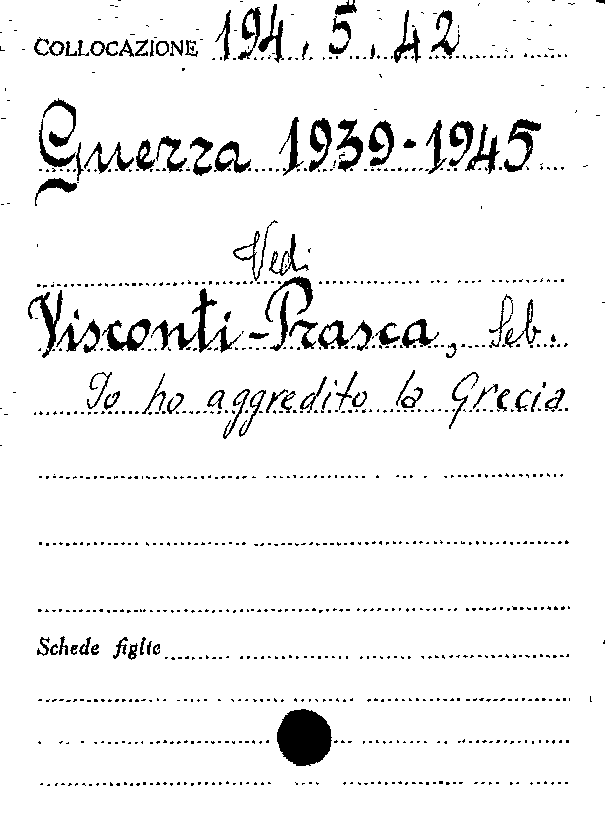 COLLOCAZIONE 194.5.42
Guerra 1939-1945
Vedi
Visconti-Prasca, Seb.
Io ho aggredito la Grecia
Schede figlie